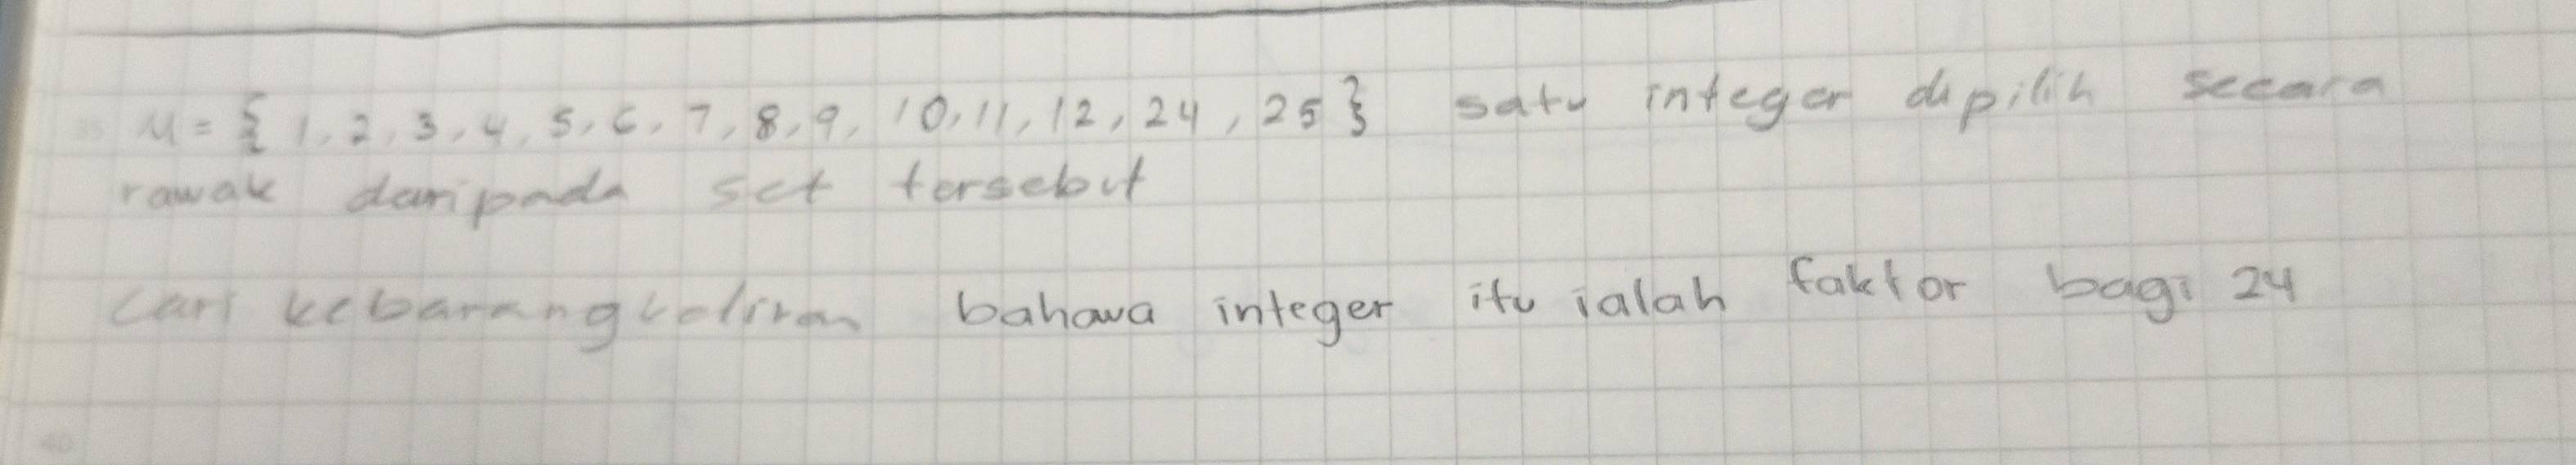 M = { 1, 2, 3, 4, 5, 6, 7, 8, 9, 10, 11, 12, 24, 25 } satu integer dipilih secara
rawak daripada set tersebut
Cari kebarangkalian bahawa integer itu ialah faktor bagi 24